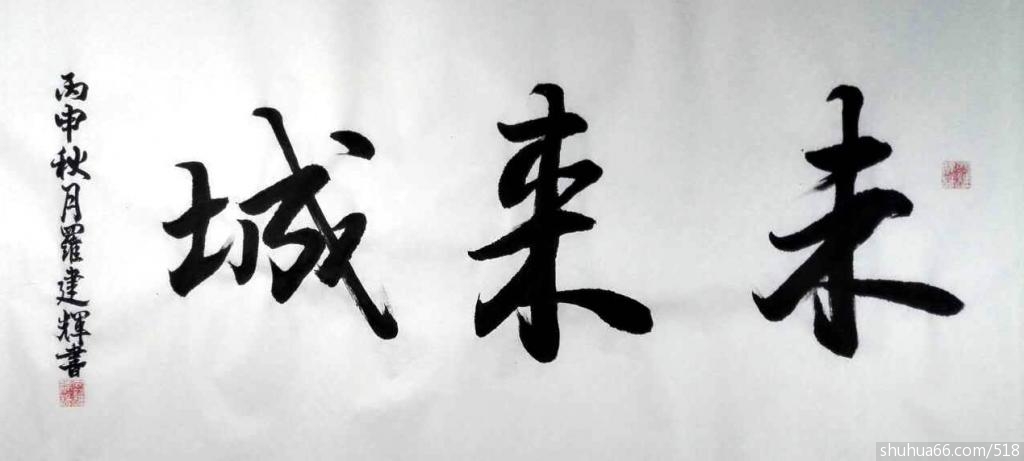 未来城
丙申秋月羅建輝書
shuhua66.com/518